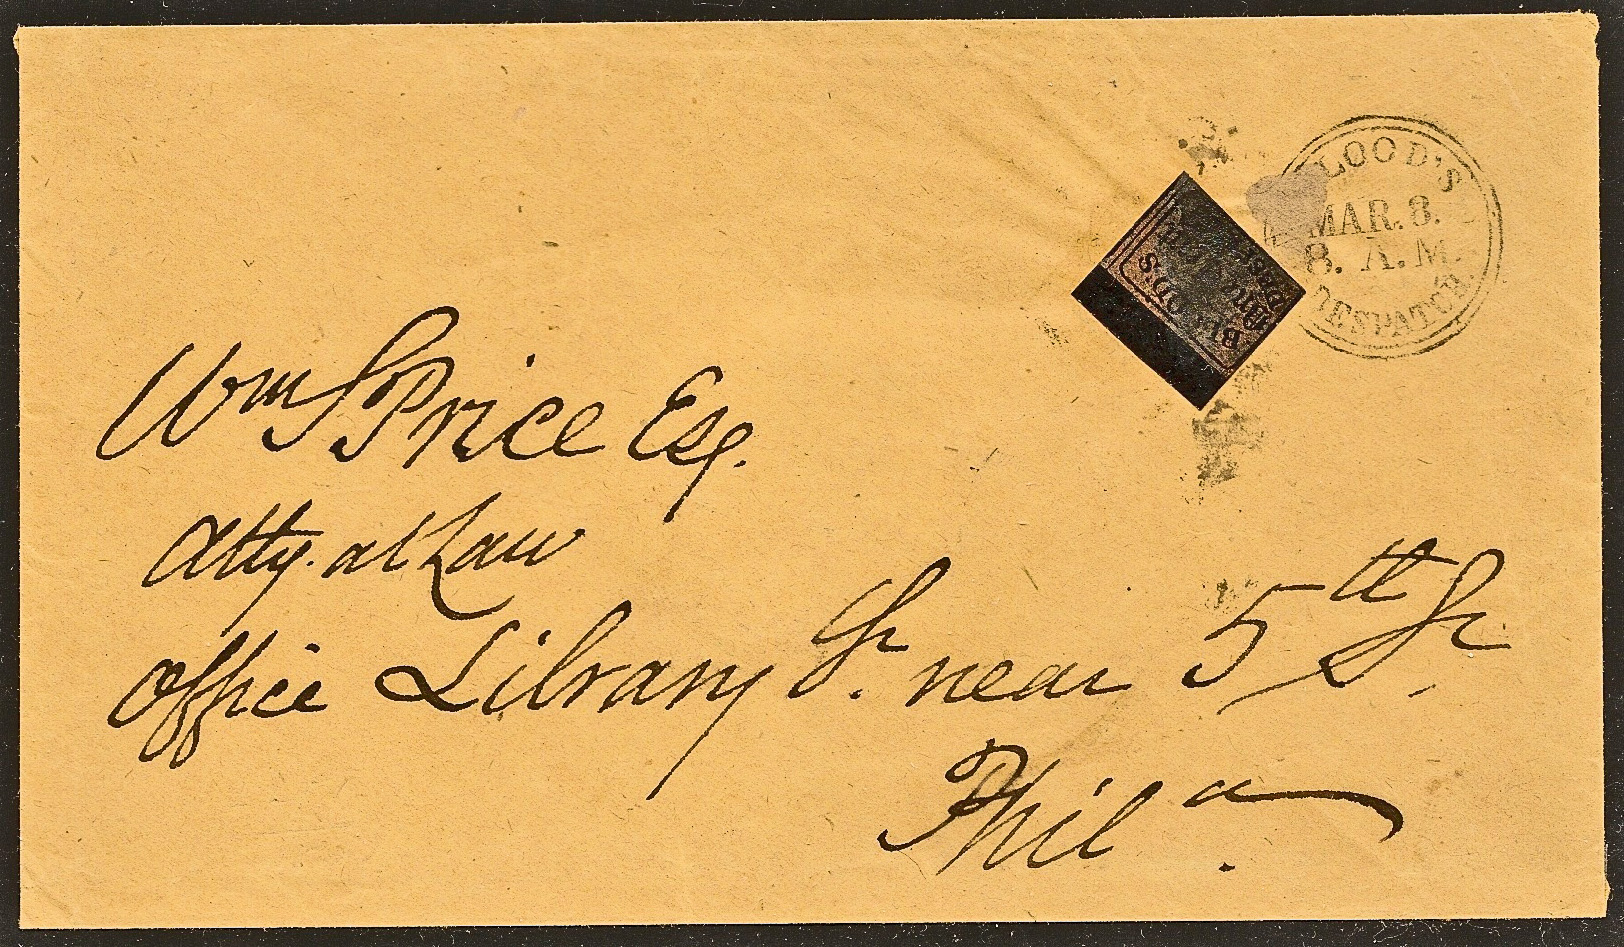 LOOD'S
MAR. 8.
8. A.M.
DESPATCH.
BLOOD'S
Wm S Price Esq.
Atty. at Law
Office Library St. near 5th St.
Phil a